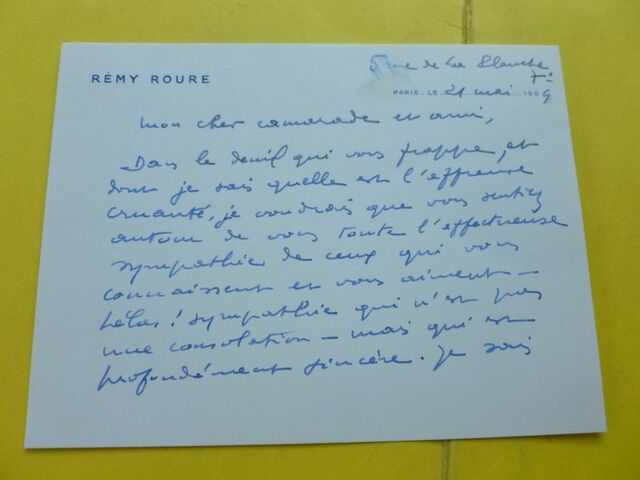 5 rue de La Planche
7e
RÉMY ROURE
PARIS, LE 21 mai 1959
mon cher camarade et ami,
Dans le deuil qui vous frappe, et
dont je sais quelle est l'affreuse
cruauté, je voudrais que vous sentiez
autour de vous toute l'affectueuse
sympathie de ceux qui vous
connaissent et vous aiment —
hélas! sympathie qui n'est pas
une consolation — mais qui est
profondément sincère. Je sais